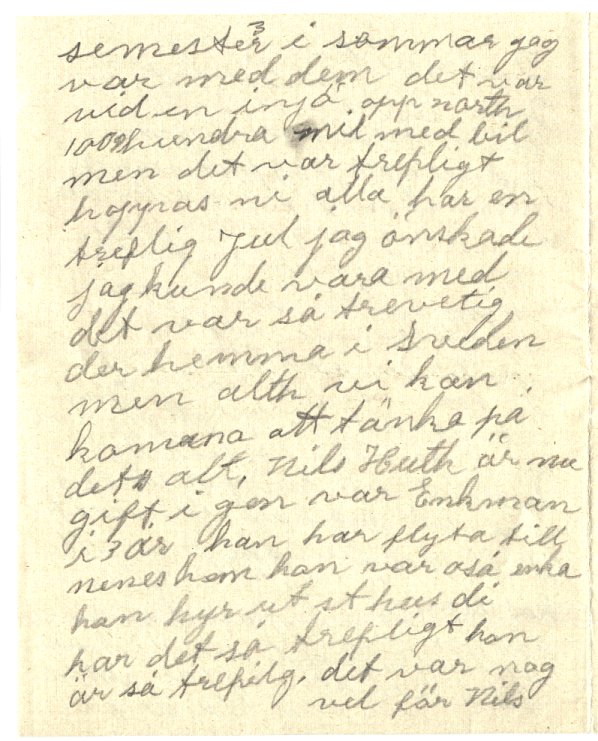 semester i sommar jag
var med dem det var
vid en injö opp north
100 hundra mil med bil
men det var trepligt
hoppas ni alla har en
treflig Jul jag önskade
jag kunde vara med
det var så trevetig
der hemma i Sveden
men alth vi kan
komana att tänka på
det alt, Nils Huth är nu
gift i gen var Enkman
i 3 år han har flyta till
nenes hem hon var oså enka
han hyr ut st hus di
har det så trefligt hon
är så trefilg. det var nog
vel får Nils